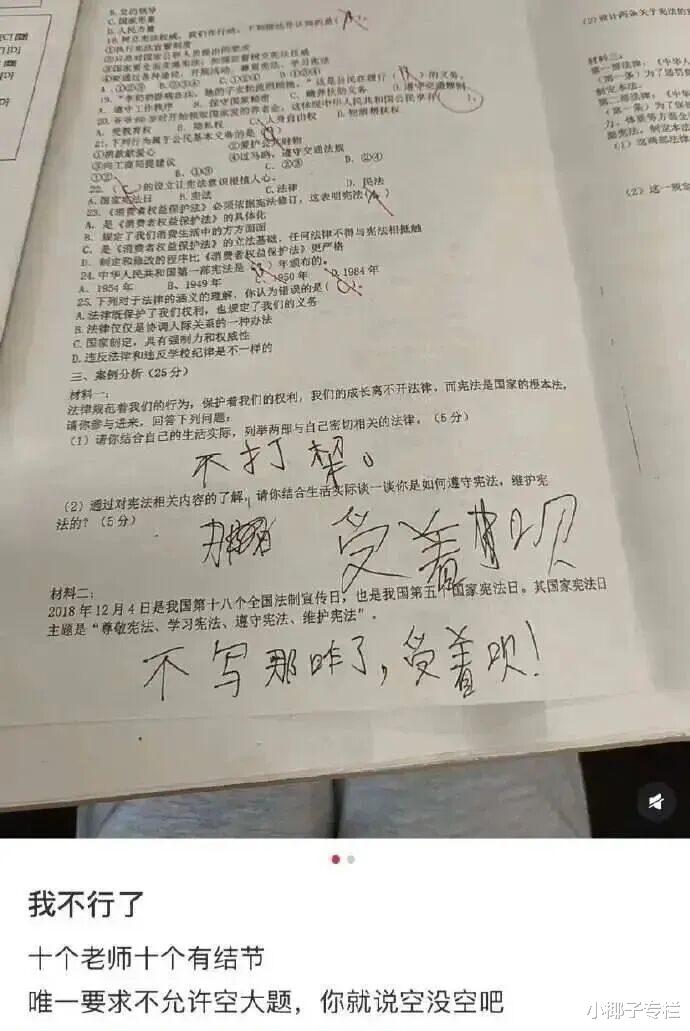 B. 党的领导
C. 国家形象
D. 人民力量
①执行宪法宣誓制度
A. ①②③ B. ②③④ C. ①②④ D. ①③④
A. 遵守工作秩序 B. 保守国家秘密 C. 赡养扶助义务 D. 遵守交通规则
A. 受教育权 B. 隐私权 C. 人身自由权 D. 物质帮助权
21. 下列行为属于公民基本义务的是
①捐款献爱心 ②爱护公共财物
③向工商局提建议 ④过马路，遵守交通法规
①② B. ①③ C. ②③ D. ②④
22. （ ）的设立让宪法意识根植人心。
A. 国家宪法日 B. 宪法 C. 法律 D. 民法
23. 《消费者权益保护法》必须依据宪法修订，这表明宪法（A）
A. 是《消费者权益保护法》的具体化
B. 规定了我们消费生活中的方方面面
C. 是《消费者权益保护法》的立法基础，任何法律不得与宪法相抵触
D. 制定和修改的程序比《消费者权益保护法》更严格
24. 中华人民共和国第一部宪法是（B）年颁布的。
A. 1954 年 B. 1949 年 C. 1950 年 D. 1984 年
25. 下列对于法律的涵义的理解，你认为错误的是（C）
A. 法律既保护了我们权利，也规定了我们的义务
B. 法律仅仅是协调人际关系的一种办法
C. 国家制定，具有强制力和权威性
D. 违反法律和违反学校纪律是不一样的
三、案例分析（25 分）
材料一：
法律规范着我们的行为，保护着我们的权利，我们的成长离不开法律。而宪法是国家的根本法，
请你参与进来，回答下列问题：
（1）请你结合自己的生活实际，列举两部与自己密切相关的法律。（5 分）
不打架。
（2）通过对宪法相关内容的了解，请你结合生活实际谈一谈你是如何遵守宪法，维护宪
法的？（5 分）
受着呗
材料二：
2018 年 12 月 4 日是我国第十八个全国法制宣传日，也是我国第五个国家宪法日。其国家宪法日
主题是“尊敬宪法、学习宪法、遵守宪法、维护宪法”。
不写那咋了，受着呗！
（2）设计两条关于宪法的
材料三：
第一部法律，《中华人
（第一条）为了惩罚
制定本法。
第二部法律，《中华
（第一条）为了保
力、体质等方面全
据宪法，制定本法
（1）这两部法律
（2）这一规定
我不行了
十个老师十个有结节
唯一要求不允许空大题，你就说空没空吧
小椰子专栏